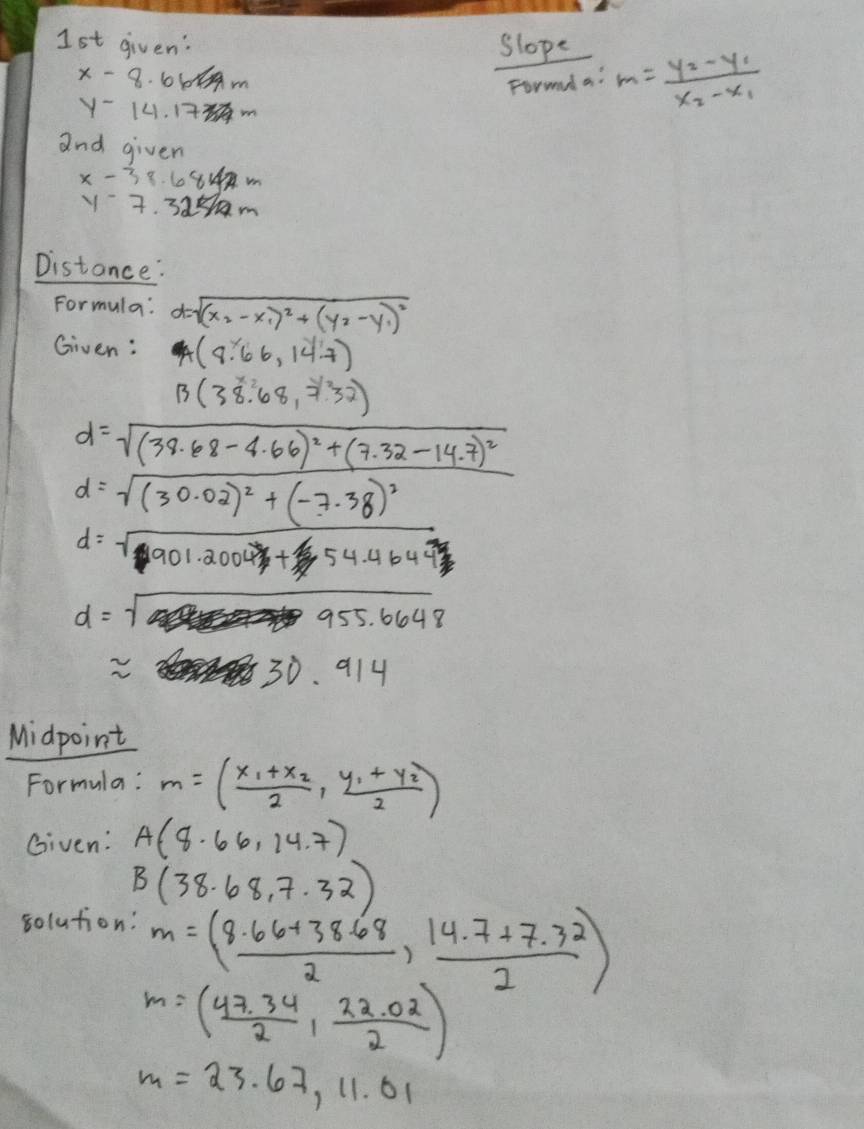 1st given:
x - 8.66 m
y - 14.17 m
2nd given
x - 38.68 m
y - 7.32 m
Slope
Formula: m = y₂-y₁ / x₂-x₁
Distance:
Formula: d=√(x₂-x₁)²+(y₂-y₁)²
Given: A(8.66, 14.7)
B(38.68, 7.32)
d=√(38.68-8.66)²+(7.32-14.7)²
d=√(30.02)²+(-7.38)²
d=√901.2004+54.4644
d=√955.6648
≈ 30.914
Midpoint
Formula: m=(x₁+x₂/2, y₁+y₂/2)
Given: A(8.66, 14.7)
B(38.68, 7.32)
solution: m=(8.66+38.68/2, 14.7+7.32/2)
m=(47.34/2, 22.02/2)
m=23.67, 11.01